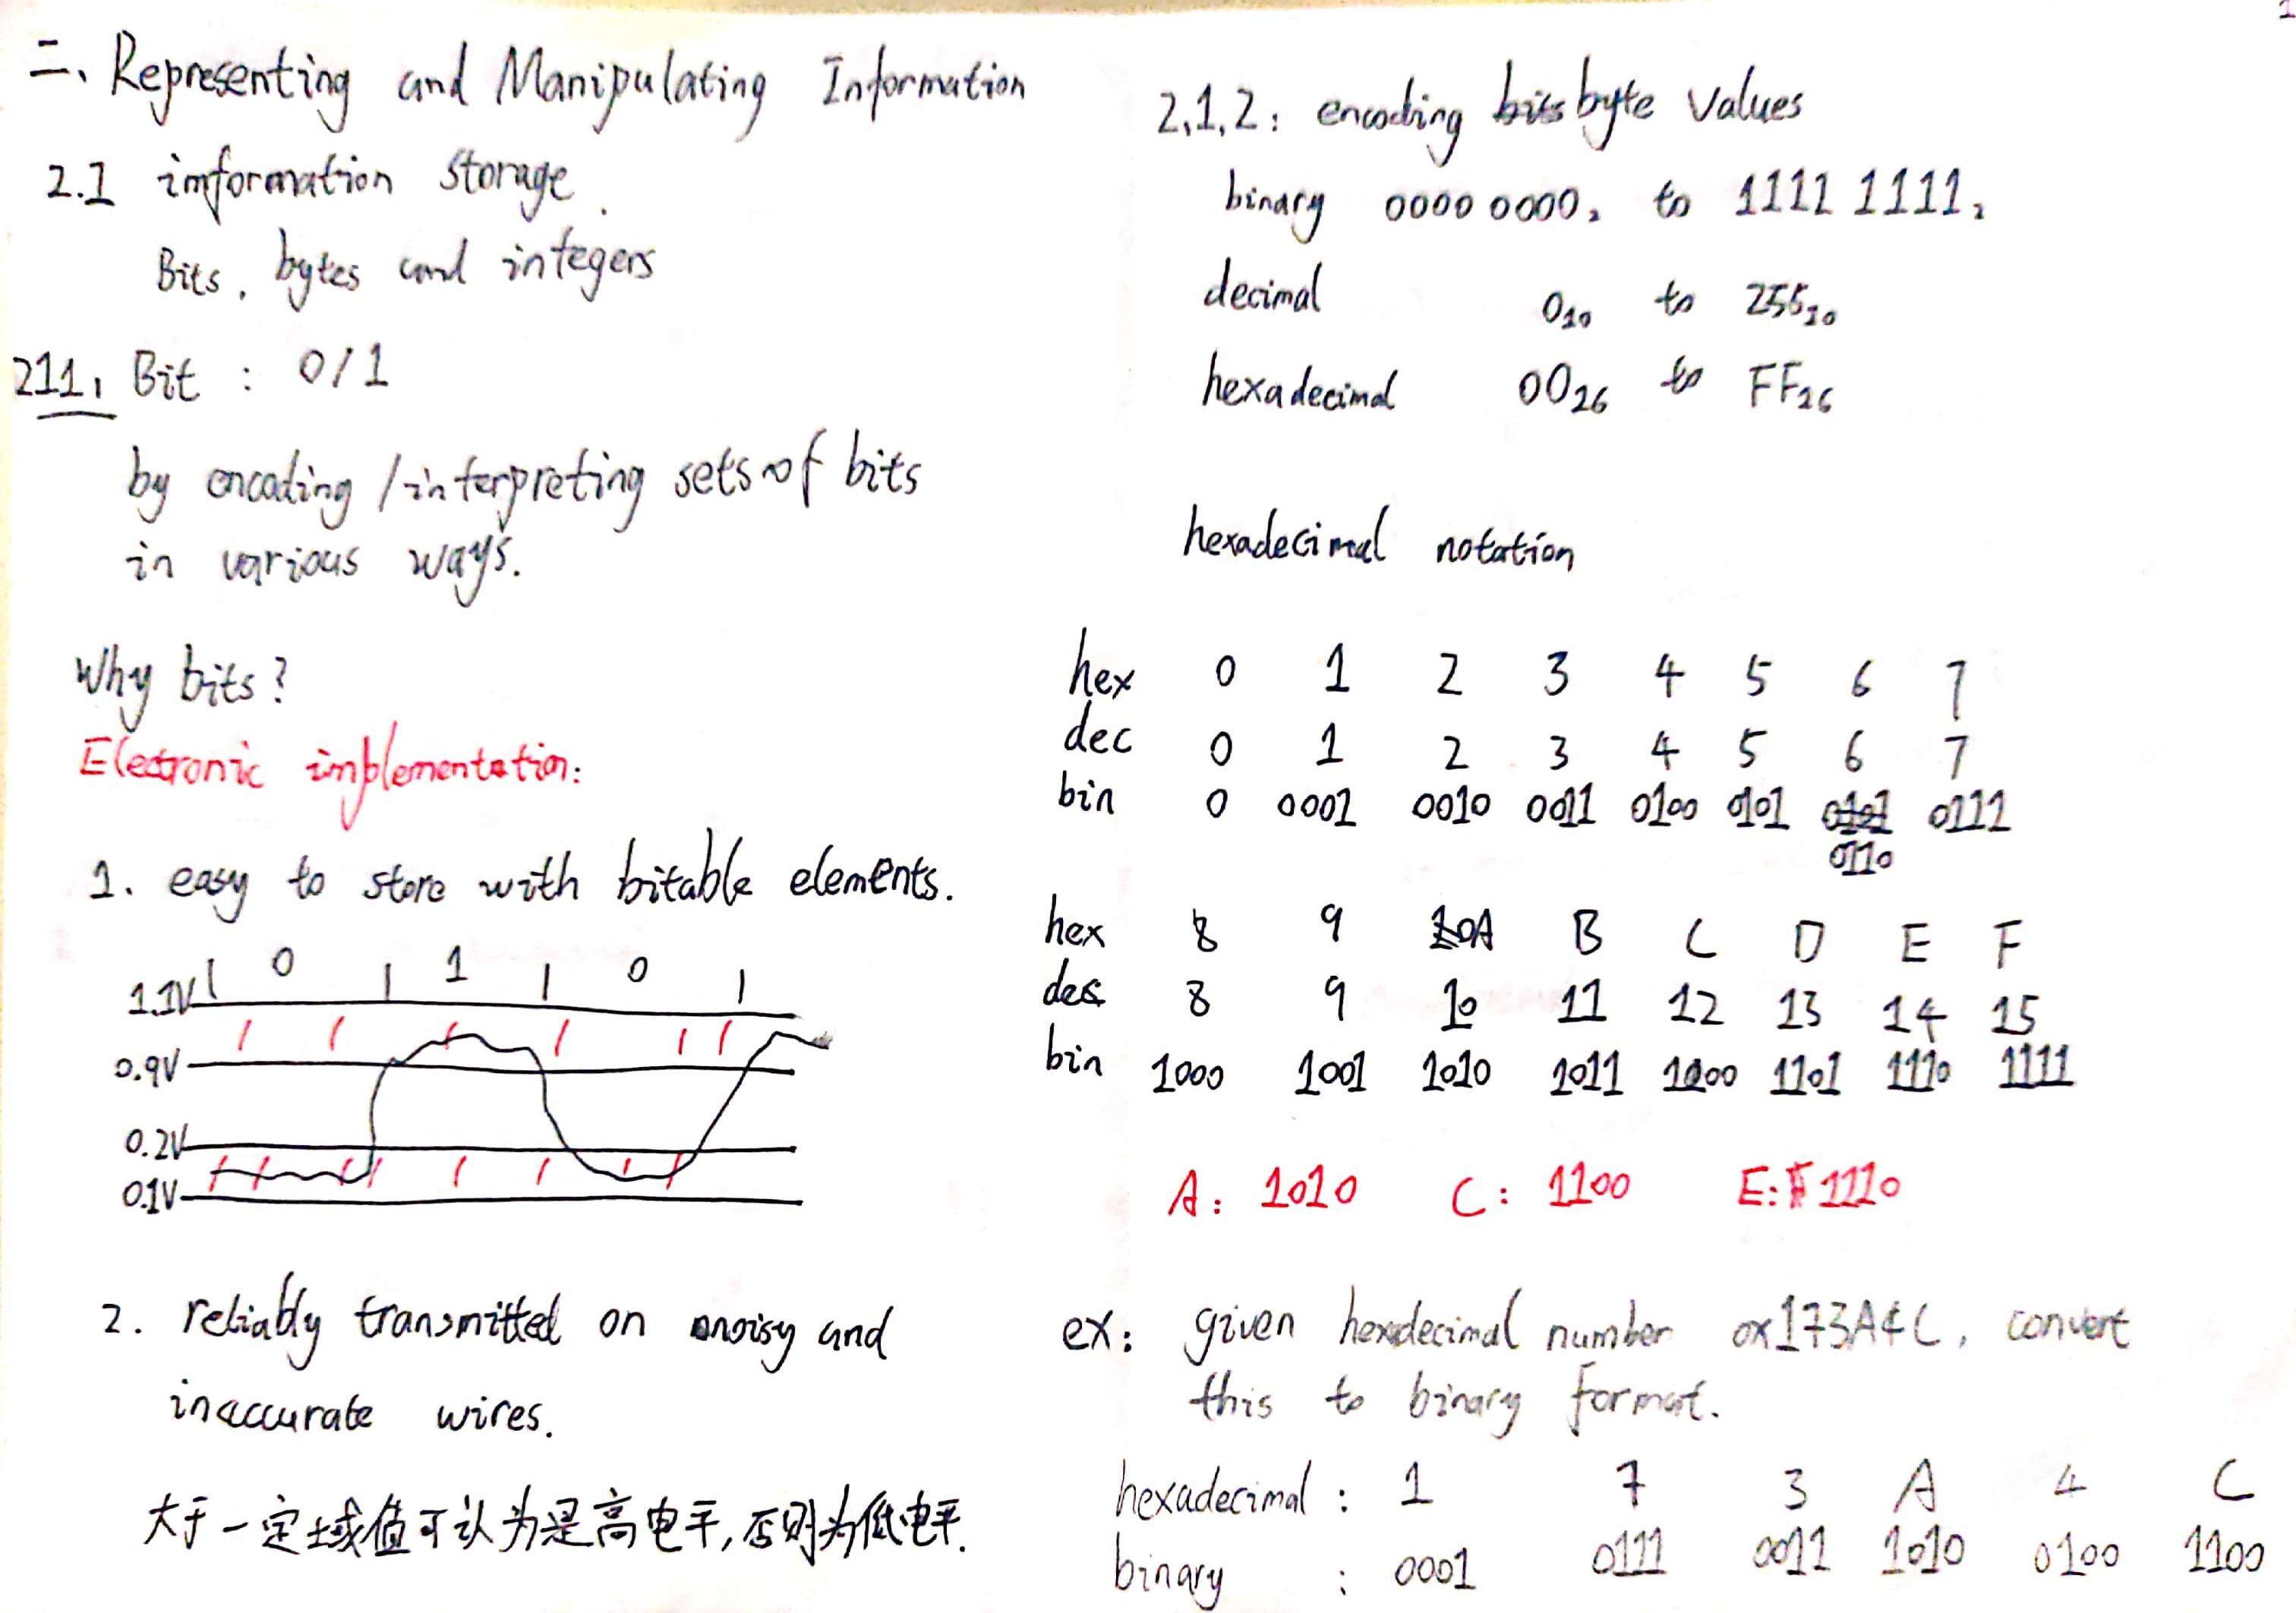 二、Representing and Manipulating Information
2.1 imformation storage.
Bits, bytes and integers
211, Bit : 0/1
by encoding / interpreting sets of bits
in various ways.
Why bits?
Electronic implementation:
1. easy to store with bitable elements.
0 1 0
1.1V
0.9V
0.2V
0.1V
2. reliably transmitted on noisy and
inaccurate wires.
大于一定域值可认为是高电平,否则为低电平.
1
2,1,2: encoding bits byte values
binary 0000 0000₂ to 1111 1111₂
decimal 0₁₀ to 255₁₀
hexadecimal 00₁₆ to FF₁₆
hexadecimal notation
hex 0 1 2 3 4 5 6 7
dec 0 1 2 3 4 5 6 7
bin 0 0001 0010 0011 0100 0101 0101 0111
0110
hex 8 9 10A B C D E F
dec 8 9 10 11 12 13 14 15
bin 1000 1001 1010 1011 1100 1101 1110 1111
A: 1010 C: 1100 E: 1110
ex: given hexdecimal number 0x173A4C, convert
this to binary format.
hexadecimal : 1 7 3 A 4 C
binary : 0001 0111 0011 1010 0100 1100